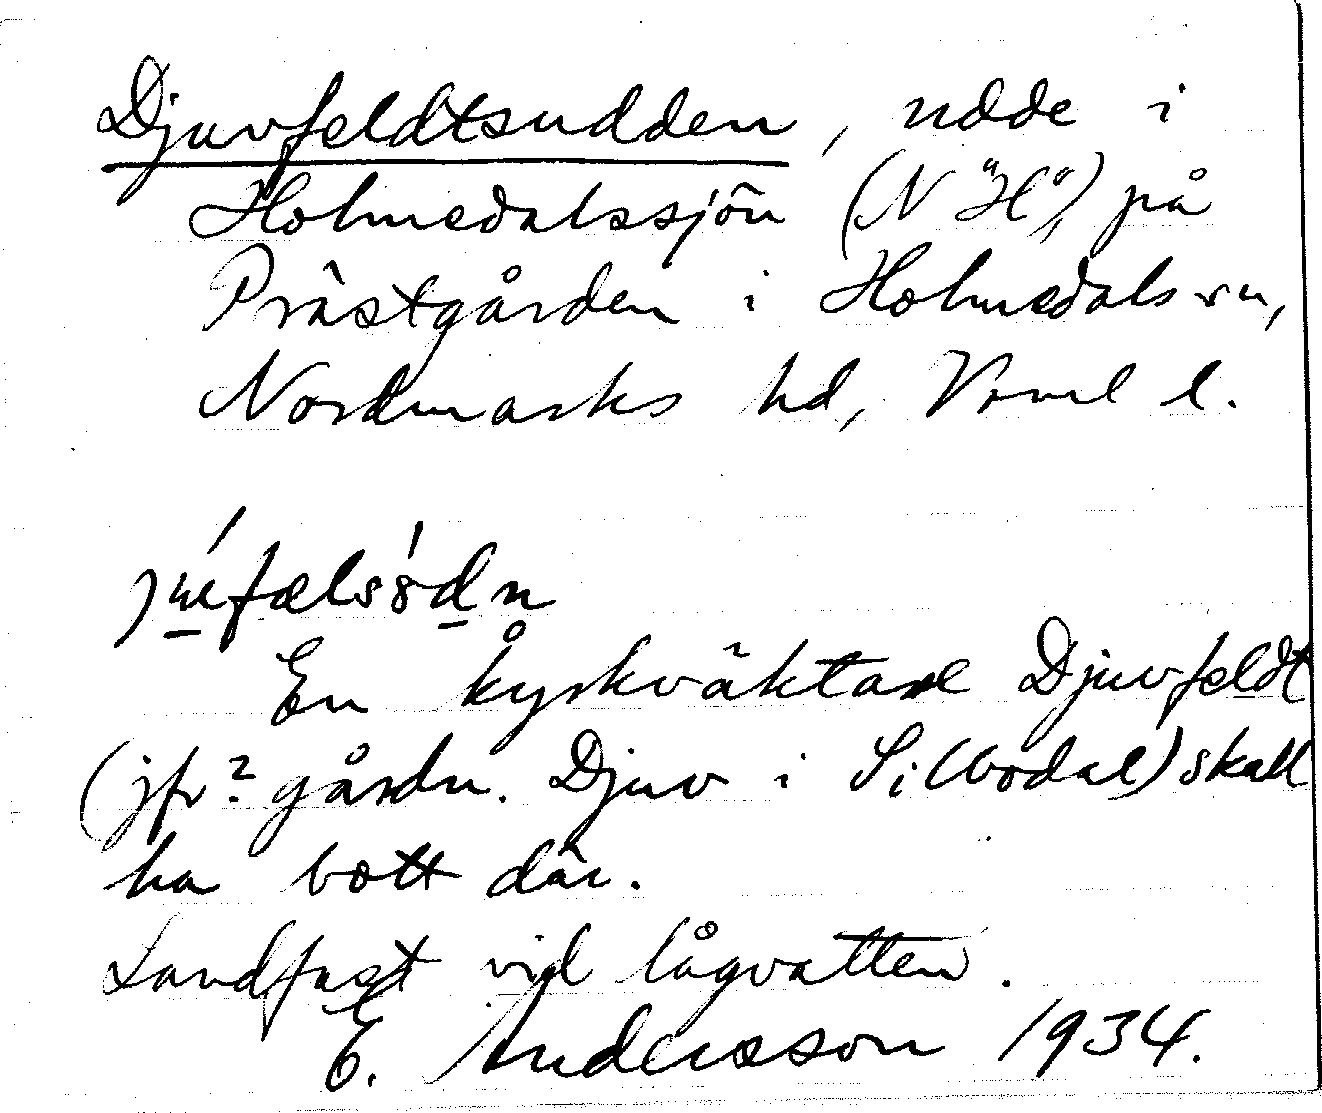 Djuvfeldtsudden, udde i
Holmedalssjön (N "H"), på
Prästgården i Holmedals sn,
Nordmarks hd, Vrml l.
En kyrkväktare Djuvfeldt
(jfr? gårdn. Djuv i Silbodal) skall
ha bott där.
Landfast vid lågvatten.
E. Andersson 1934.